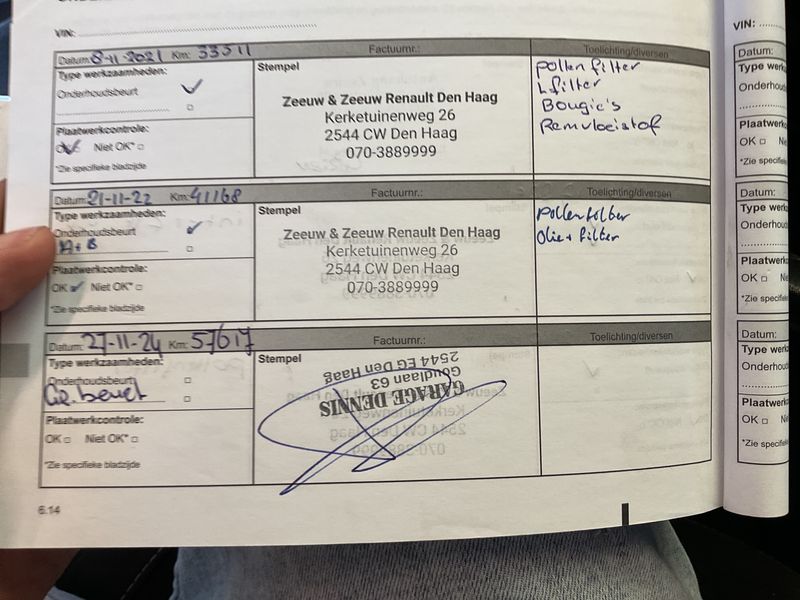 VIN:
Datum: 8-11-2021 Km: 33511 Factuurnr.: Toelichting/diversen
Type werkzaamheden:
Onderhoudsbeurt
Plaatwerkcontrole:
OK Niet OK*
*Zie specifieke bladzijde
Stempel
Zeeuw & Zeeuw Renault Den Haag
Kerketuinenweg 26
2544 CW Den Haag
070-3889999
pollen filter
L filter
Bougie's
Remvloeistof
Datum: 21-11-22 Km: 41168 Factuurnr.: Toelichting/diversen
Type werkzaamheden:
Onderhoudsbeurt
A+B
Plaatwerkcontrole:
OK Niet OK*
*Zie specifieke bladzijde
Stempel
Zeeuw & Zeeuw Renault Den Haag
Kerketuinenweg 26
2544 CW Den Haag
070-3889999
pollenfilter
Olie + filter
Datum: 27-11-24 Km: 57617 Factuurnr.: Toelichting/diversen
Type werkzaamheden:
Onderhoudsbeurt
Gr. beurt
Plaatwerkcontrole:
OK Niet OK*
*Zie specifieke bladzijde
Stempel
GARAGE DENNIS
Goudlaan 63
2544 EG Den Haag
6.14
VIN:
Datum:
Type werk
Onderhoud
Plaatwerk
OK Ni
*Zie specifi
Datum:
Type werk
Onderhoud
Plaatwerk
OK Ni
*Zie specifi
Datum:
Type werk
Onderhoud
Plaatwerk
OK Ni
*Zie specifi